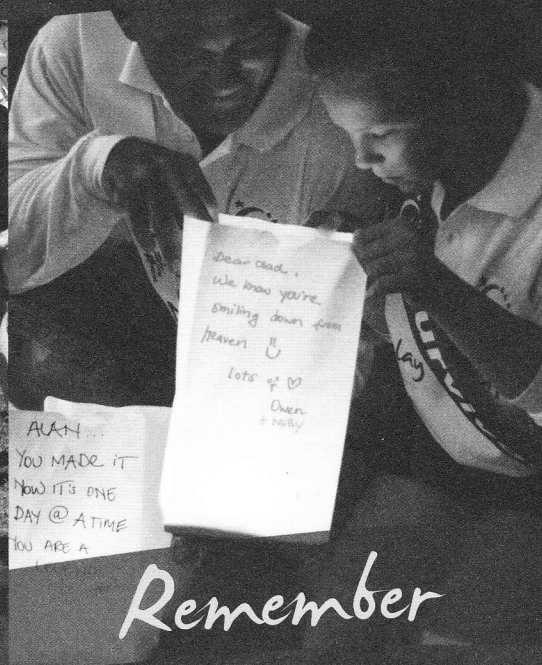 Dear dad,
We know you're
smiling down from
heaven
lots of ♡
Owen
+ Milly
ALAN...
YOU MADE IT
NOW IT'S ONE
DAY @ A TIME
YOU ARE A
Remember